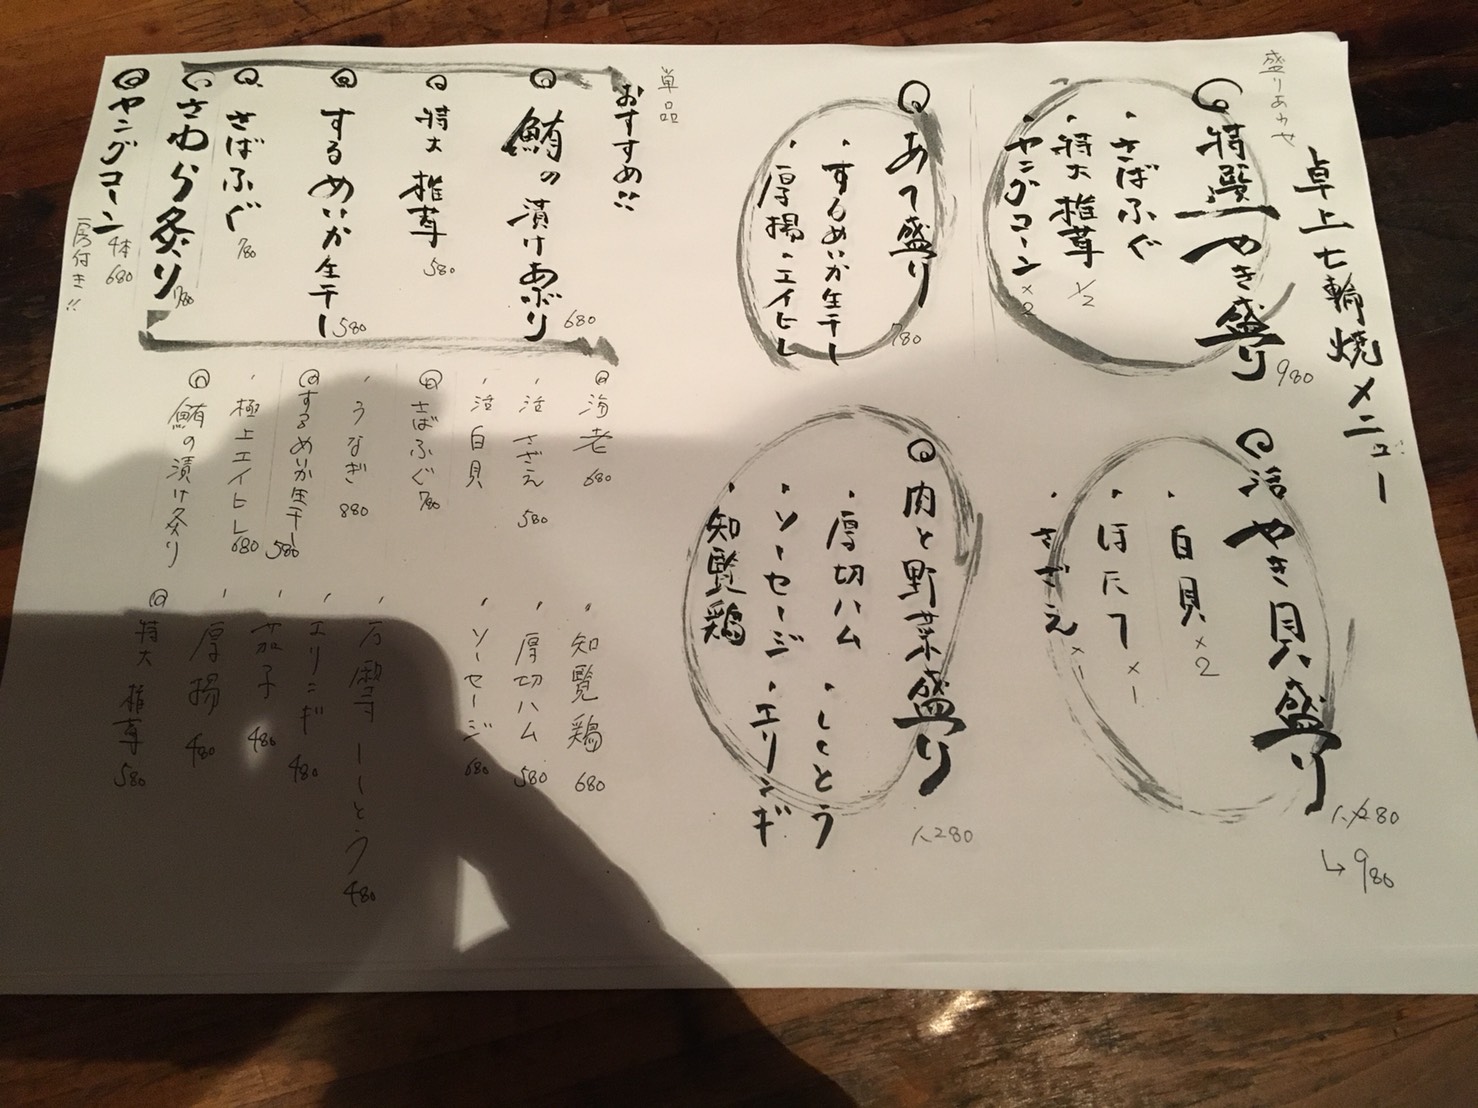 卓上七輪焼メニュー
盛りあわせ
特選やき盛り 980
・さばふぐ
・特大椎茸 1/2
・ヤングコーン ×2
活やき貝盛り 1,280
↳ 980
・白貝 ×2
・ほたて ×1
・さざえ ×1
あて盛り 780
・するめいか生干し
・厚揚・エイヒレ
肉と野菜盛り 1,280
・厚切ハム・ししとう
・ソーセージ・エリンギ
・知覧鶏
単品
おすすめ!!
鮪の漬けあぶり 680
特大椎茸 580
するめいか生干し 580
さばふぐ 780
さわら炙り 780
ヤングコーン 4本 680
房付き!!
海老 680
・活さざえ 580
・活白貝
さばふぐ 780
・うなぎ 880
するめいか生干し 580
・極上エイヒレ 680
鮪の漬け炙り
・知覧鶏 680
・厚切ハム 580
・ソーセージ 680
・万願寺ししとう 480
・エリンギ 480
・茄子 480
・厚揚 480
特大椎茸 580